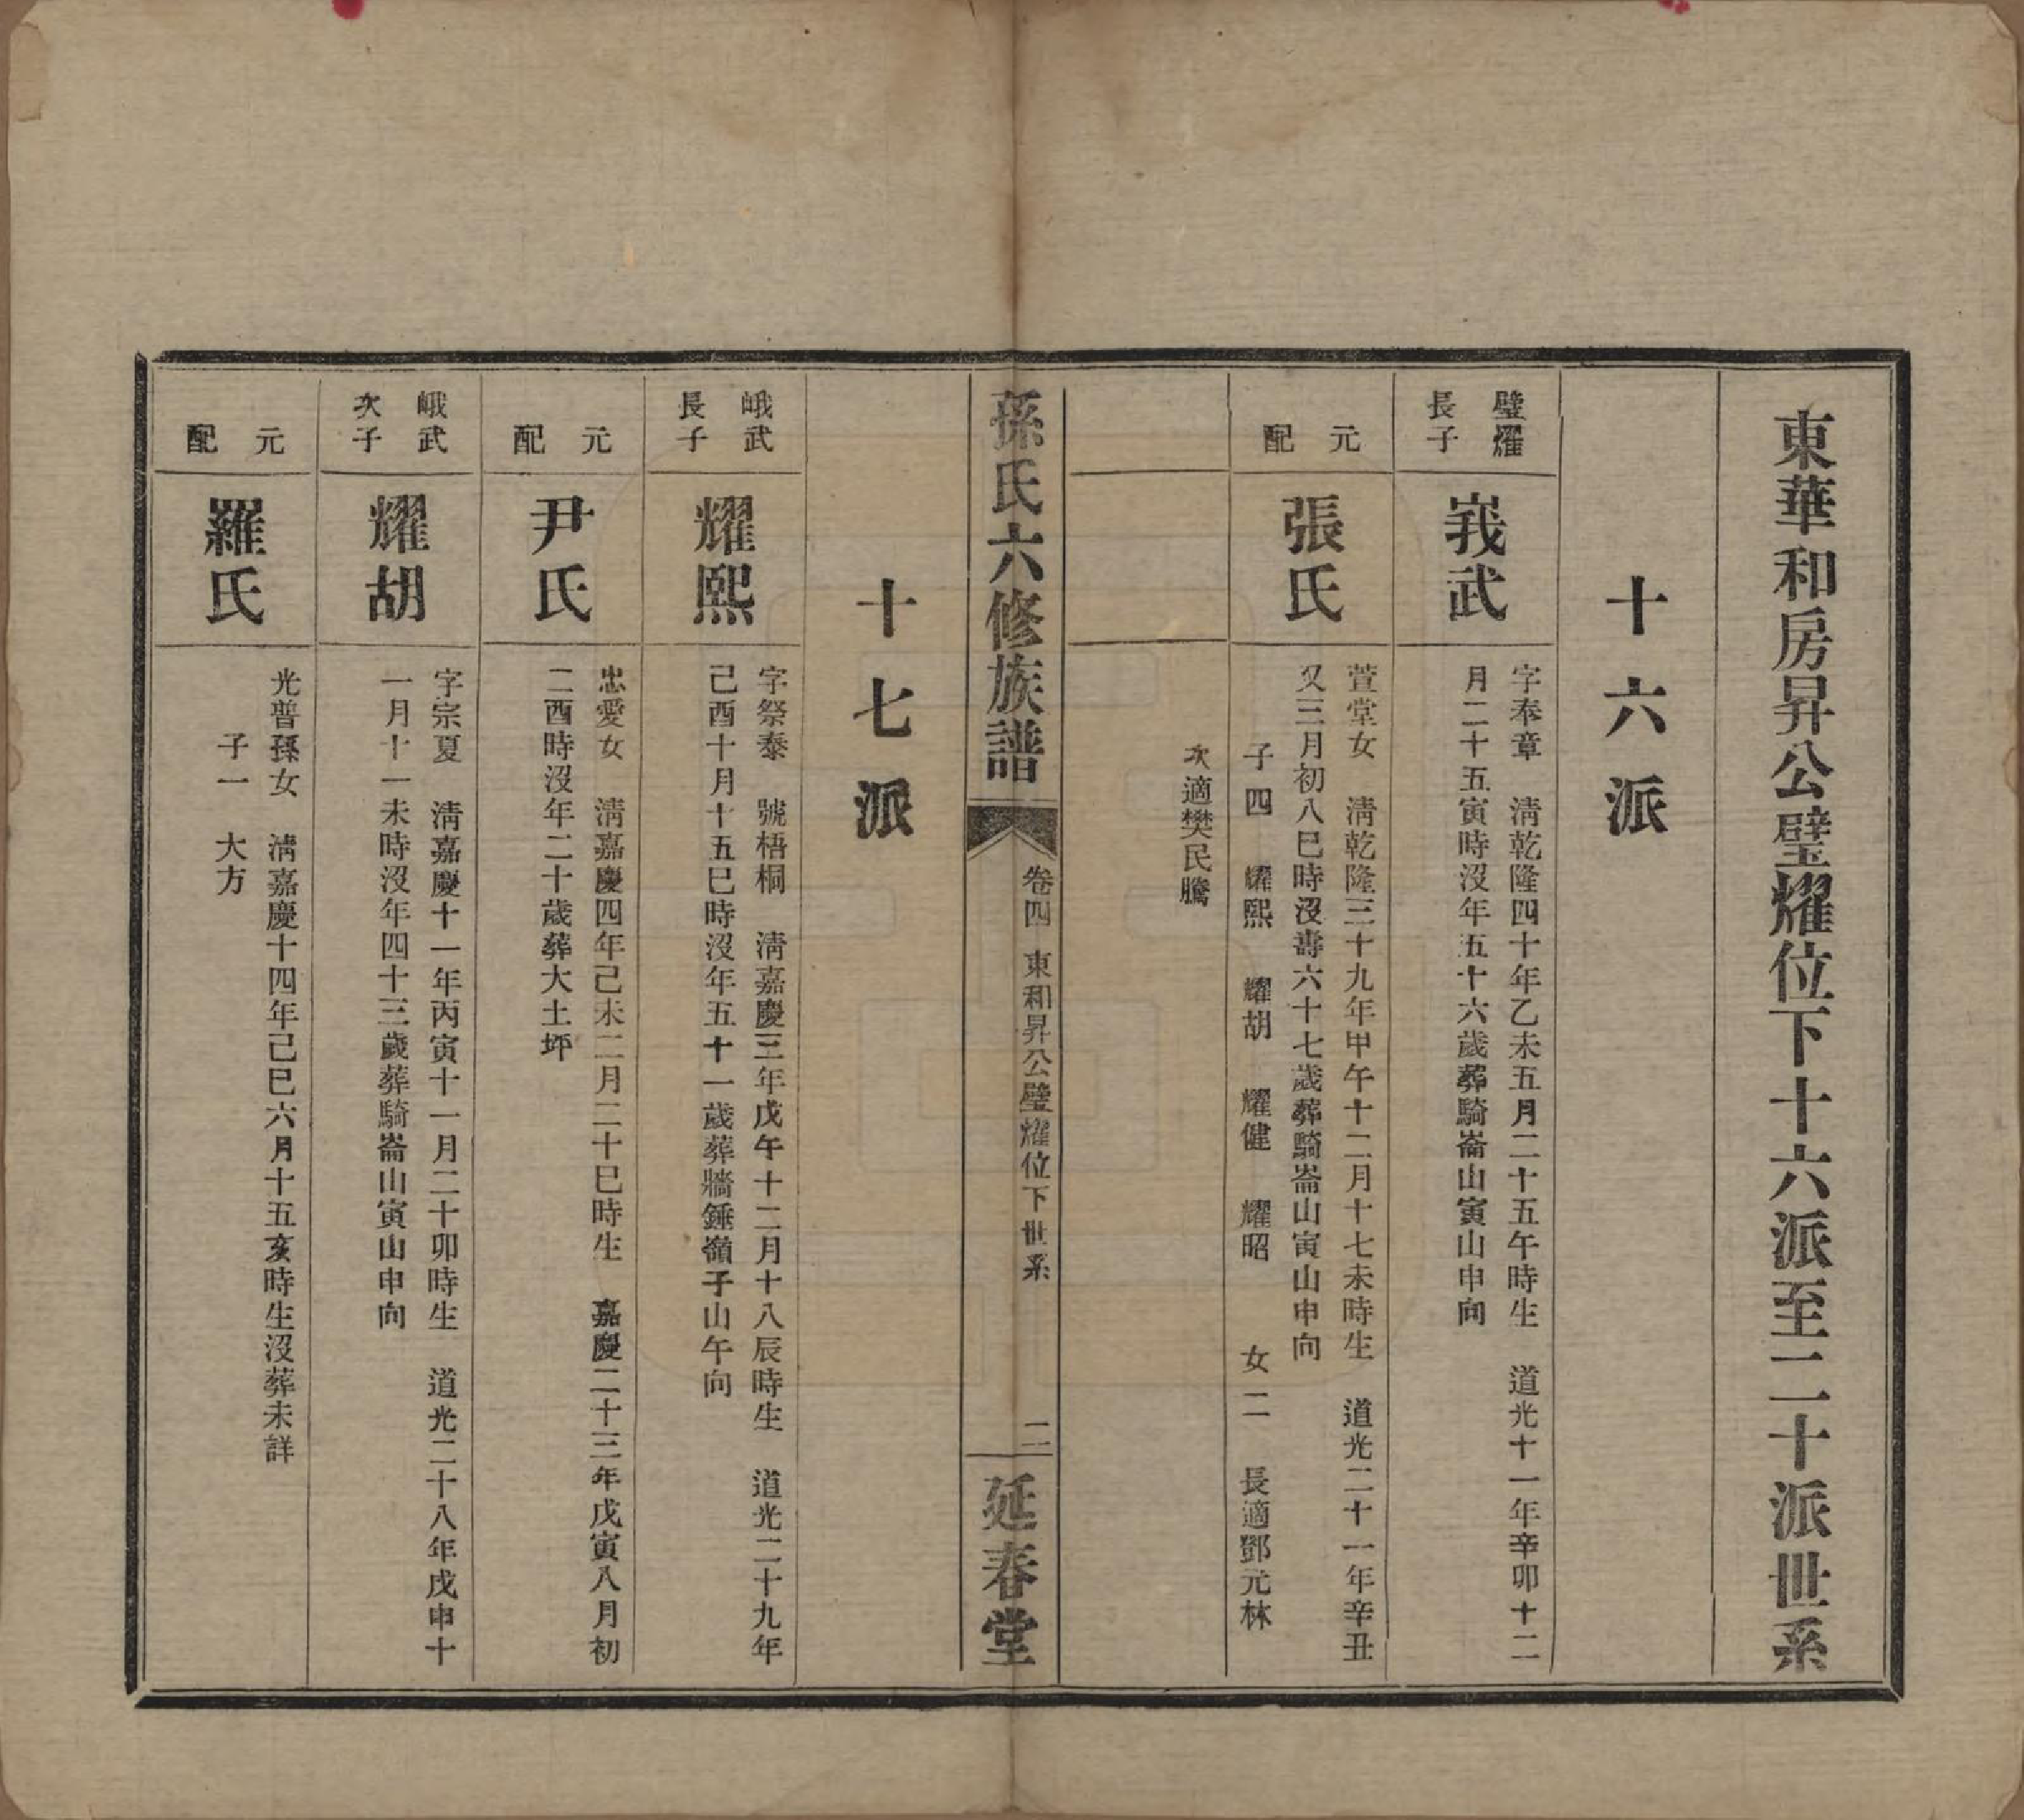 東華和房昇公璧耀位下十六派至二十派世系
十六派
璧耀
長子
峩武
字奉章　淸乾隆四十年乙未五月二十五午時生　道光十一年辛卯十二
月二十五寅時沒年五十六歲葬騎崙山寅山申向
元
配
張氏
萱堂女　淸乾隆三十九年甲午十二月十七未時生　道光二十一年辛丑
又三月初八巳時沒壽六十七歲葬騎崙山寅山申向
子四　耀熙　耀胡　耀健　耀昭　　女二　長適鄧元林
次適樊民騰
孫氏六修族譜
卷四　東和昇公璧耀位下世系
二
延春堂
十七派
峨武
長子
耀熙
字祭泰　號梧桐　淸嘉慶三年戊午十二月十八辰時生　道光二十九年
己酉十月十五巳時沒年五十一歲葬牆錘嶺子山午向
元
配
尹氏
忠愛女　淸嘉慶四年己未二月二十巳時生　嘉慶二十三年戊寅八月初
二酉時沒年二十歲葬大土坪
峨武
次子
耀胡
字宗夏　淸嘉慶十一年丙寅十一月二十卯時生　道光二十八年戊申十
一月十一未時沒年四十三歲葬騎崙山寅山申向
元
配
羅氏
光普孫女　淸嘉慶十四年己巳六月十五亥時生沒葬未詳
子一　大方